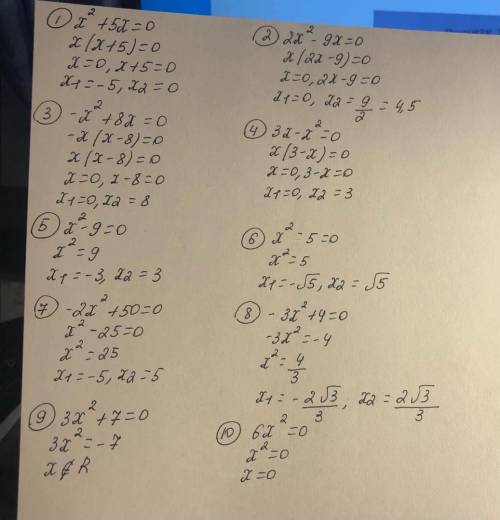 ① x²+5x=0
x(x+5)=0
x=0, x+5=0
x1=-5, x2=0
② 2x²-9x=0
x(2x-9)=0
x=0, 2x-9=0
x1=0, x2=9/2=4,5
③ -x²+8x=0
-x(x-8)=0
x(x-8)=0
x=0, x-8=0
x1=0, x2=8
④ 3x-x²=0
x(3-x)=0
x=0, 3-x=0
x1=0, x2=3
⑤ x²-9=0
x²=9
x1=-3, x2=3
⑥ x²-5=0
x²=5
x1=-√5, x2=√5
⑦ -2x²+50=0
x²-25=0
x²=25
x1=-5, x2=5
⑧ -3x²+4=0
-3x²=-4
x²=4/3
x1=-2√3/3, x2=2√3/3
⑨ 3x²+7=0
3x²=-7
x∉R
⑩ 6x²=0
x²=0
x=0